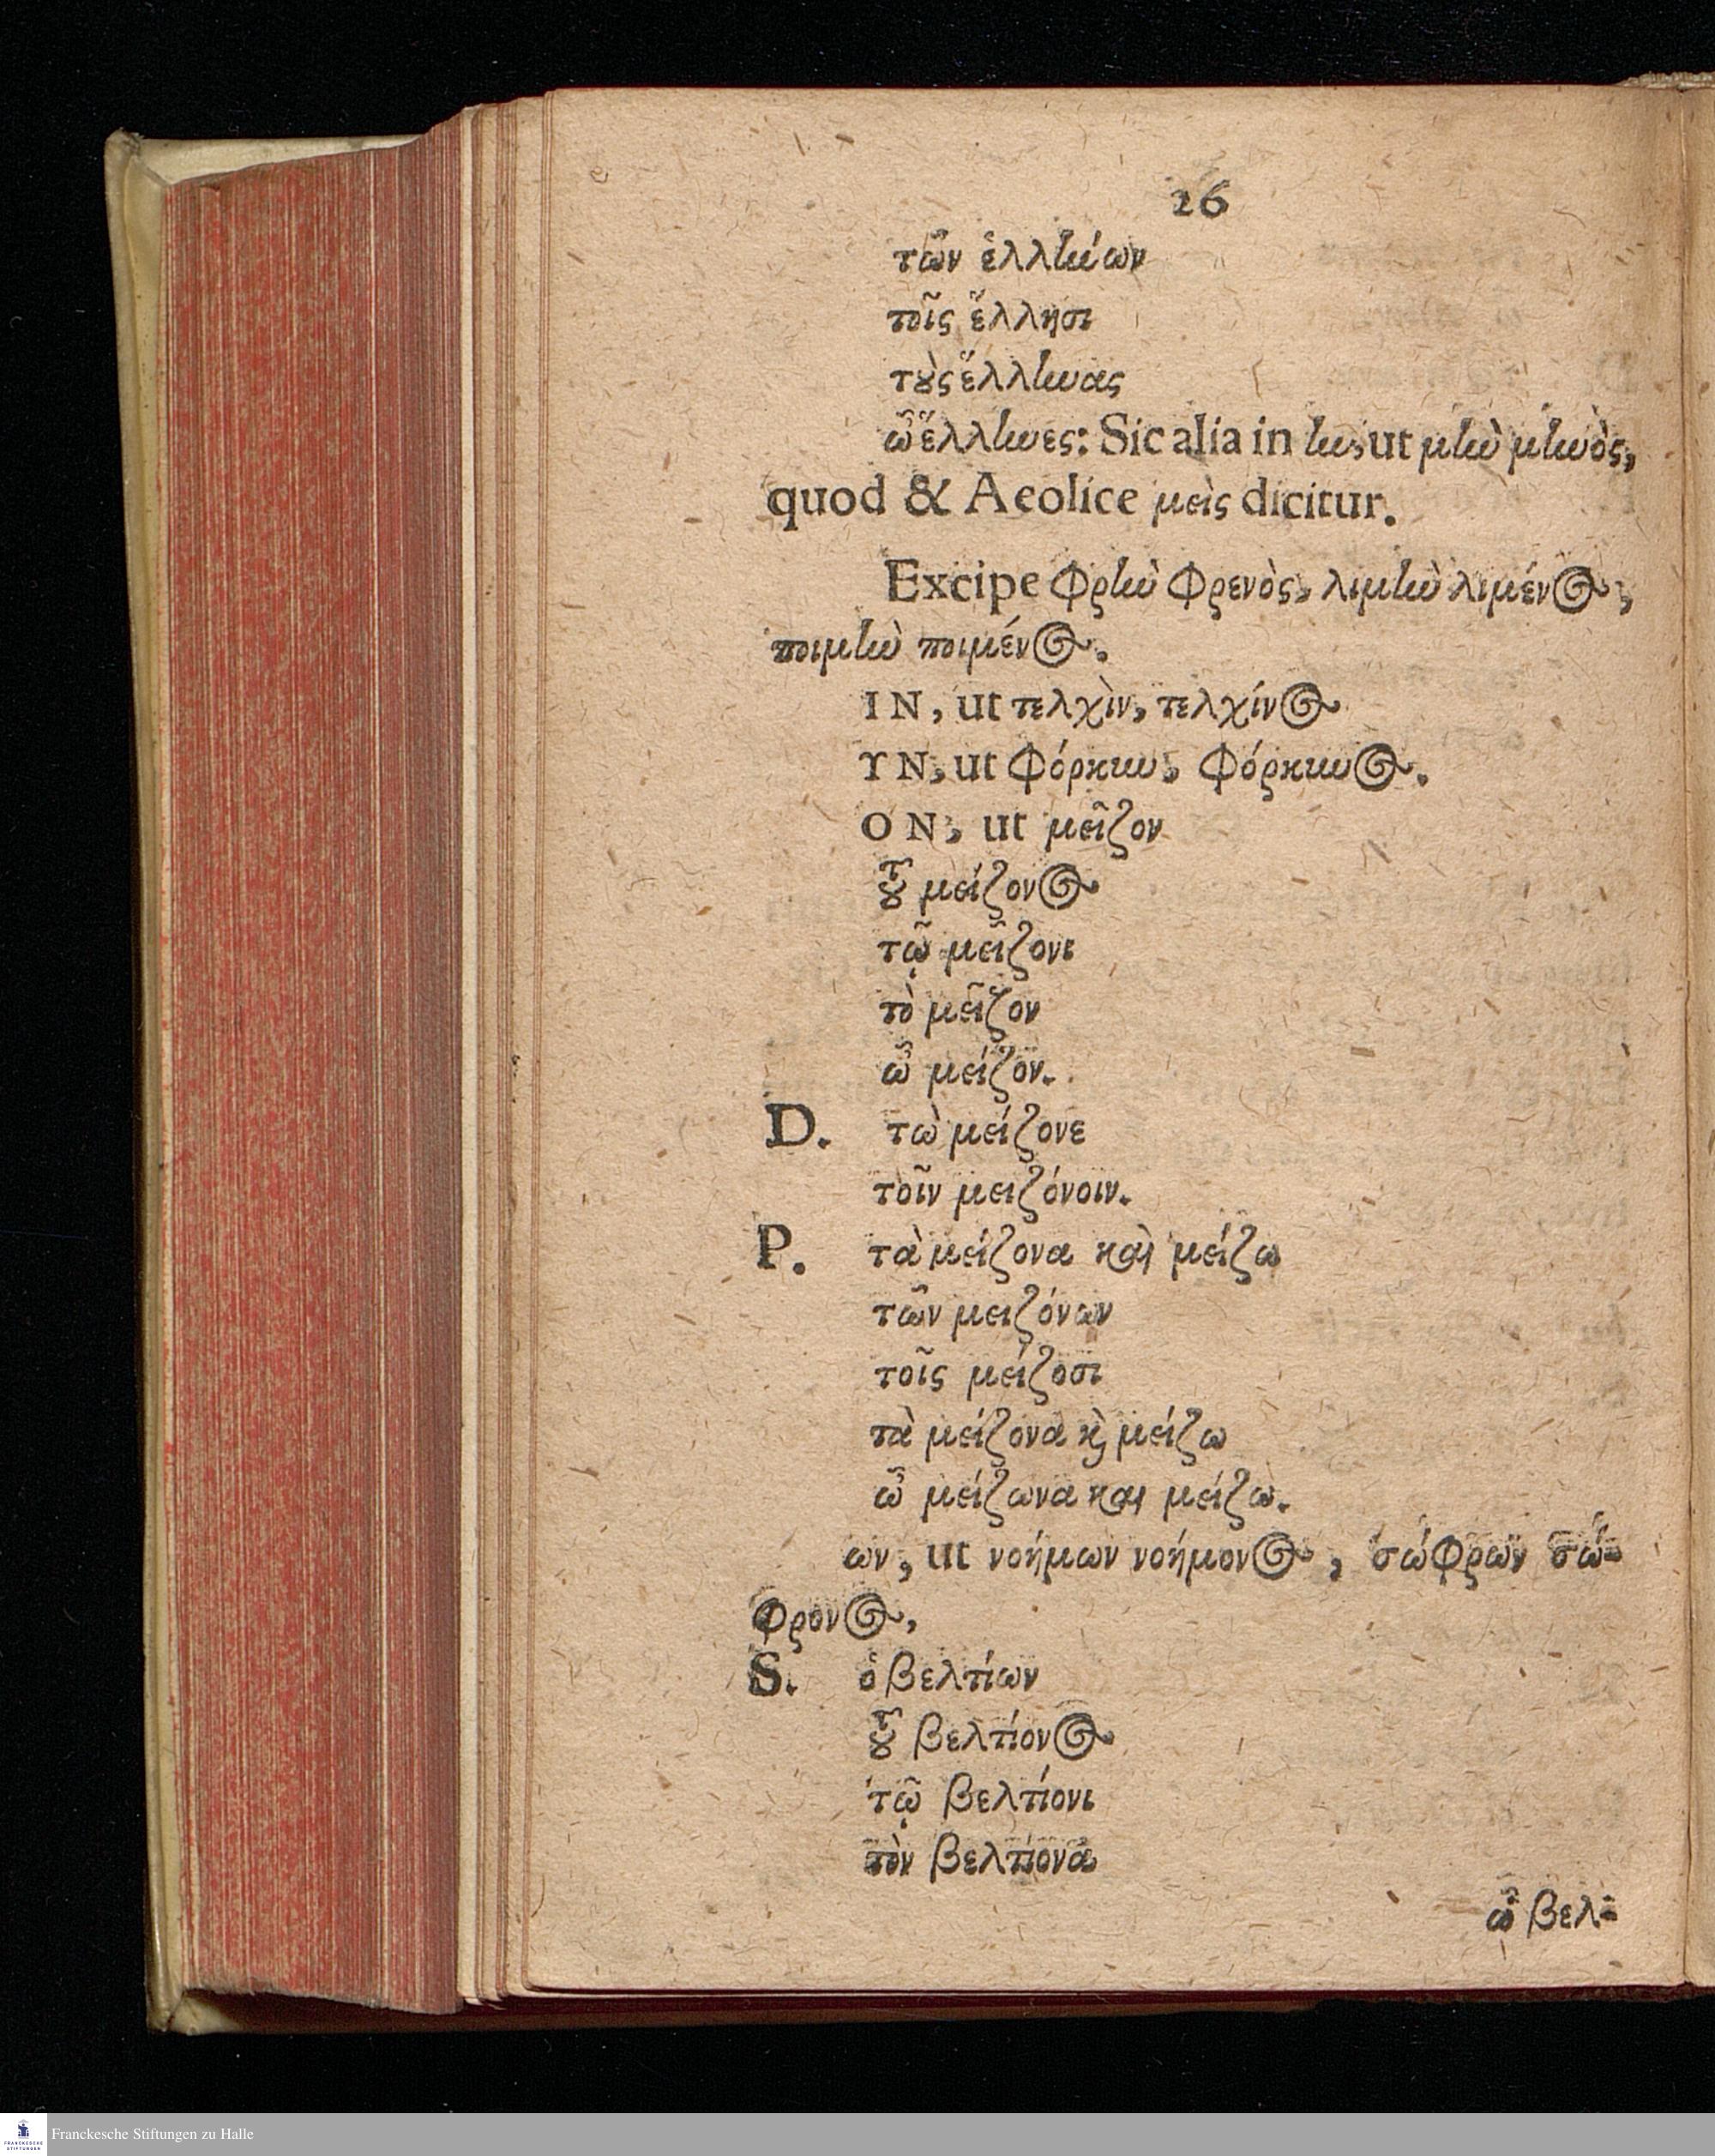 26
τῶν ἑλλήνων
τοῖς ἕλλησι
τοὺς ἕλληνας
ὦ ἕλληνες: Sic alia in ην, ut μὴν μηνὸς,
quod & Aeolice μεὶς dicitur.
Excipe φρὴν φρενὸς, λιμὴν λιμένος,
ποιμὴν ποιμένος.
IN, ut τελχὶν, τελχίνος
ΥN, ut φόρκυν, φόρκυνος.
ON, ut μεῖζον
τοῦ μείζονος
τῷ μεῖζονι
τὸ μεῖζον
ὦ μείζον.
D. τὼ μείζονε
τοῖν μειζόνοιν.
P. τὰ μείζονα καὶ μείζω
τῶν μειζόνων
τοῖς μείζοσι
τὰ μείζονα καὶ μείζω
ὦ μείζωνα και μείζω.
ων, ut νοήμων νοήμονος, σώφρων σώ-
φρονος,
S. ὁ βελτίων
τοῦ βελτίονος
τῷ βελτίονι
τὸν βελτίονα
ὦ βελ-
Franckesche Stiftungen zu Halle
FRANCKESCHE
STIFTUNGEN